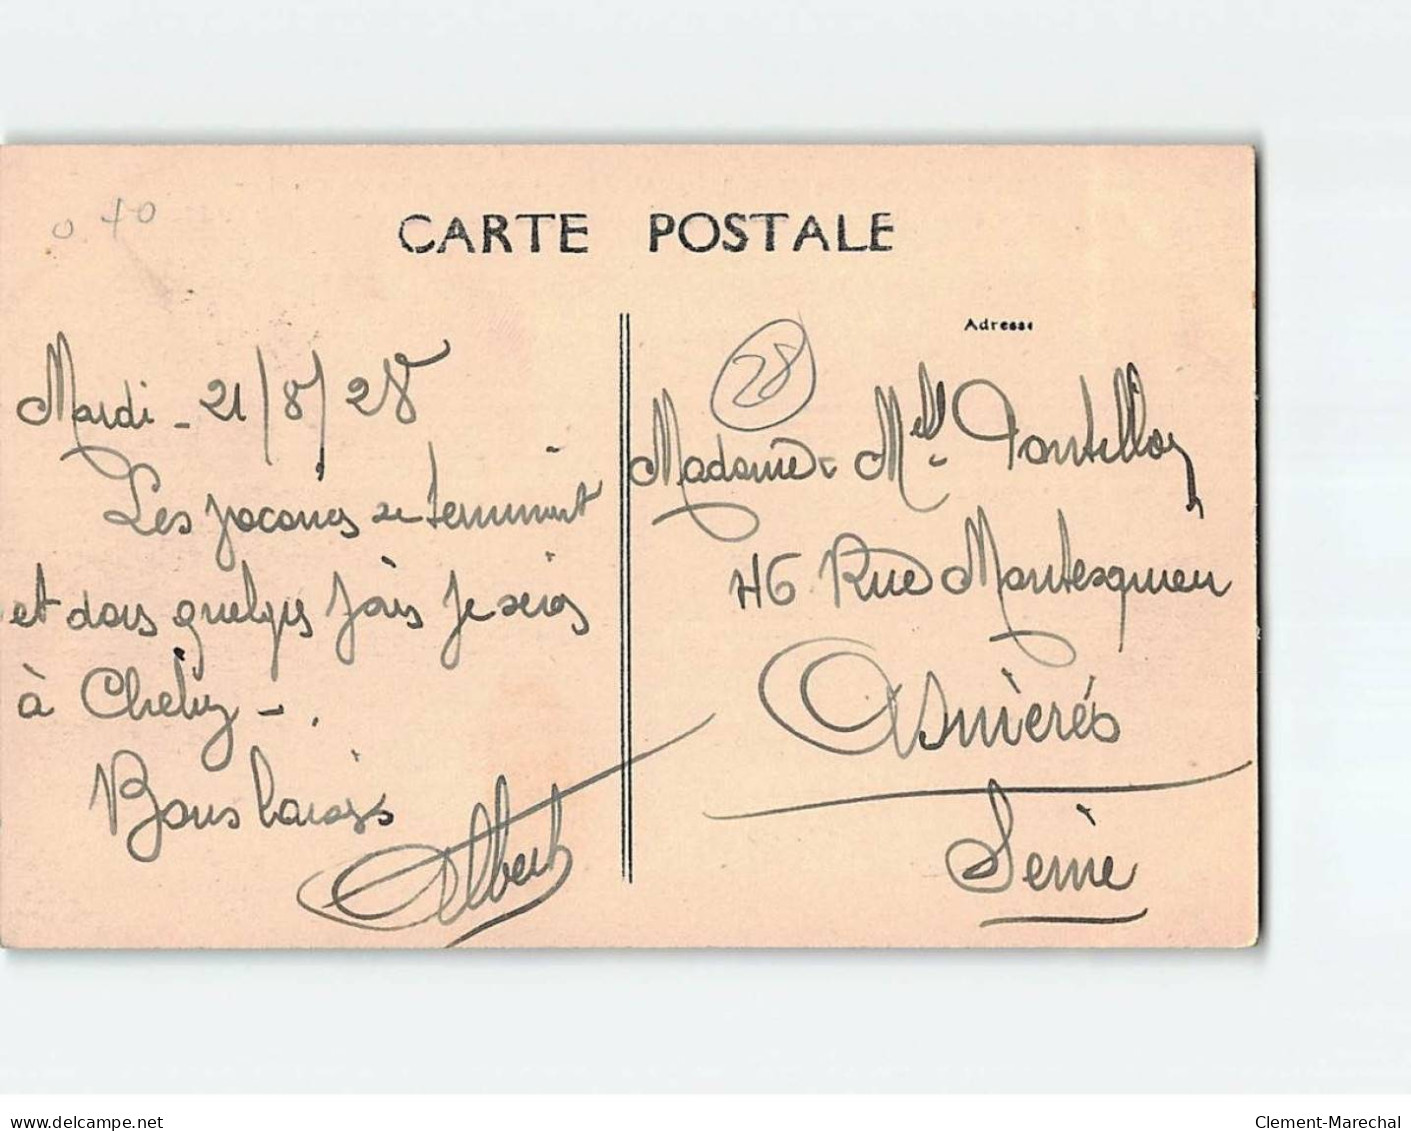 0.40
CARTE POSTALE
Adresse
28
Mardi - 21/8/28
Les vacances se terminent
et dans quelques jours je serai
à Chetiz - .
Bons baisers
Albert
Madame & Mlle
46 Rue Montesquieu
Asnières
Seine
www.delcampe.net
Clement-Marechal